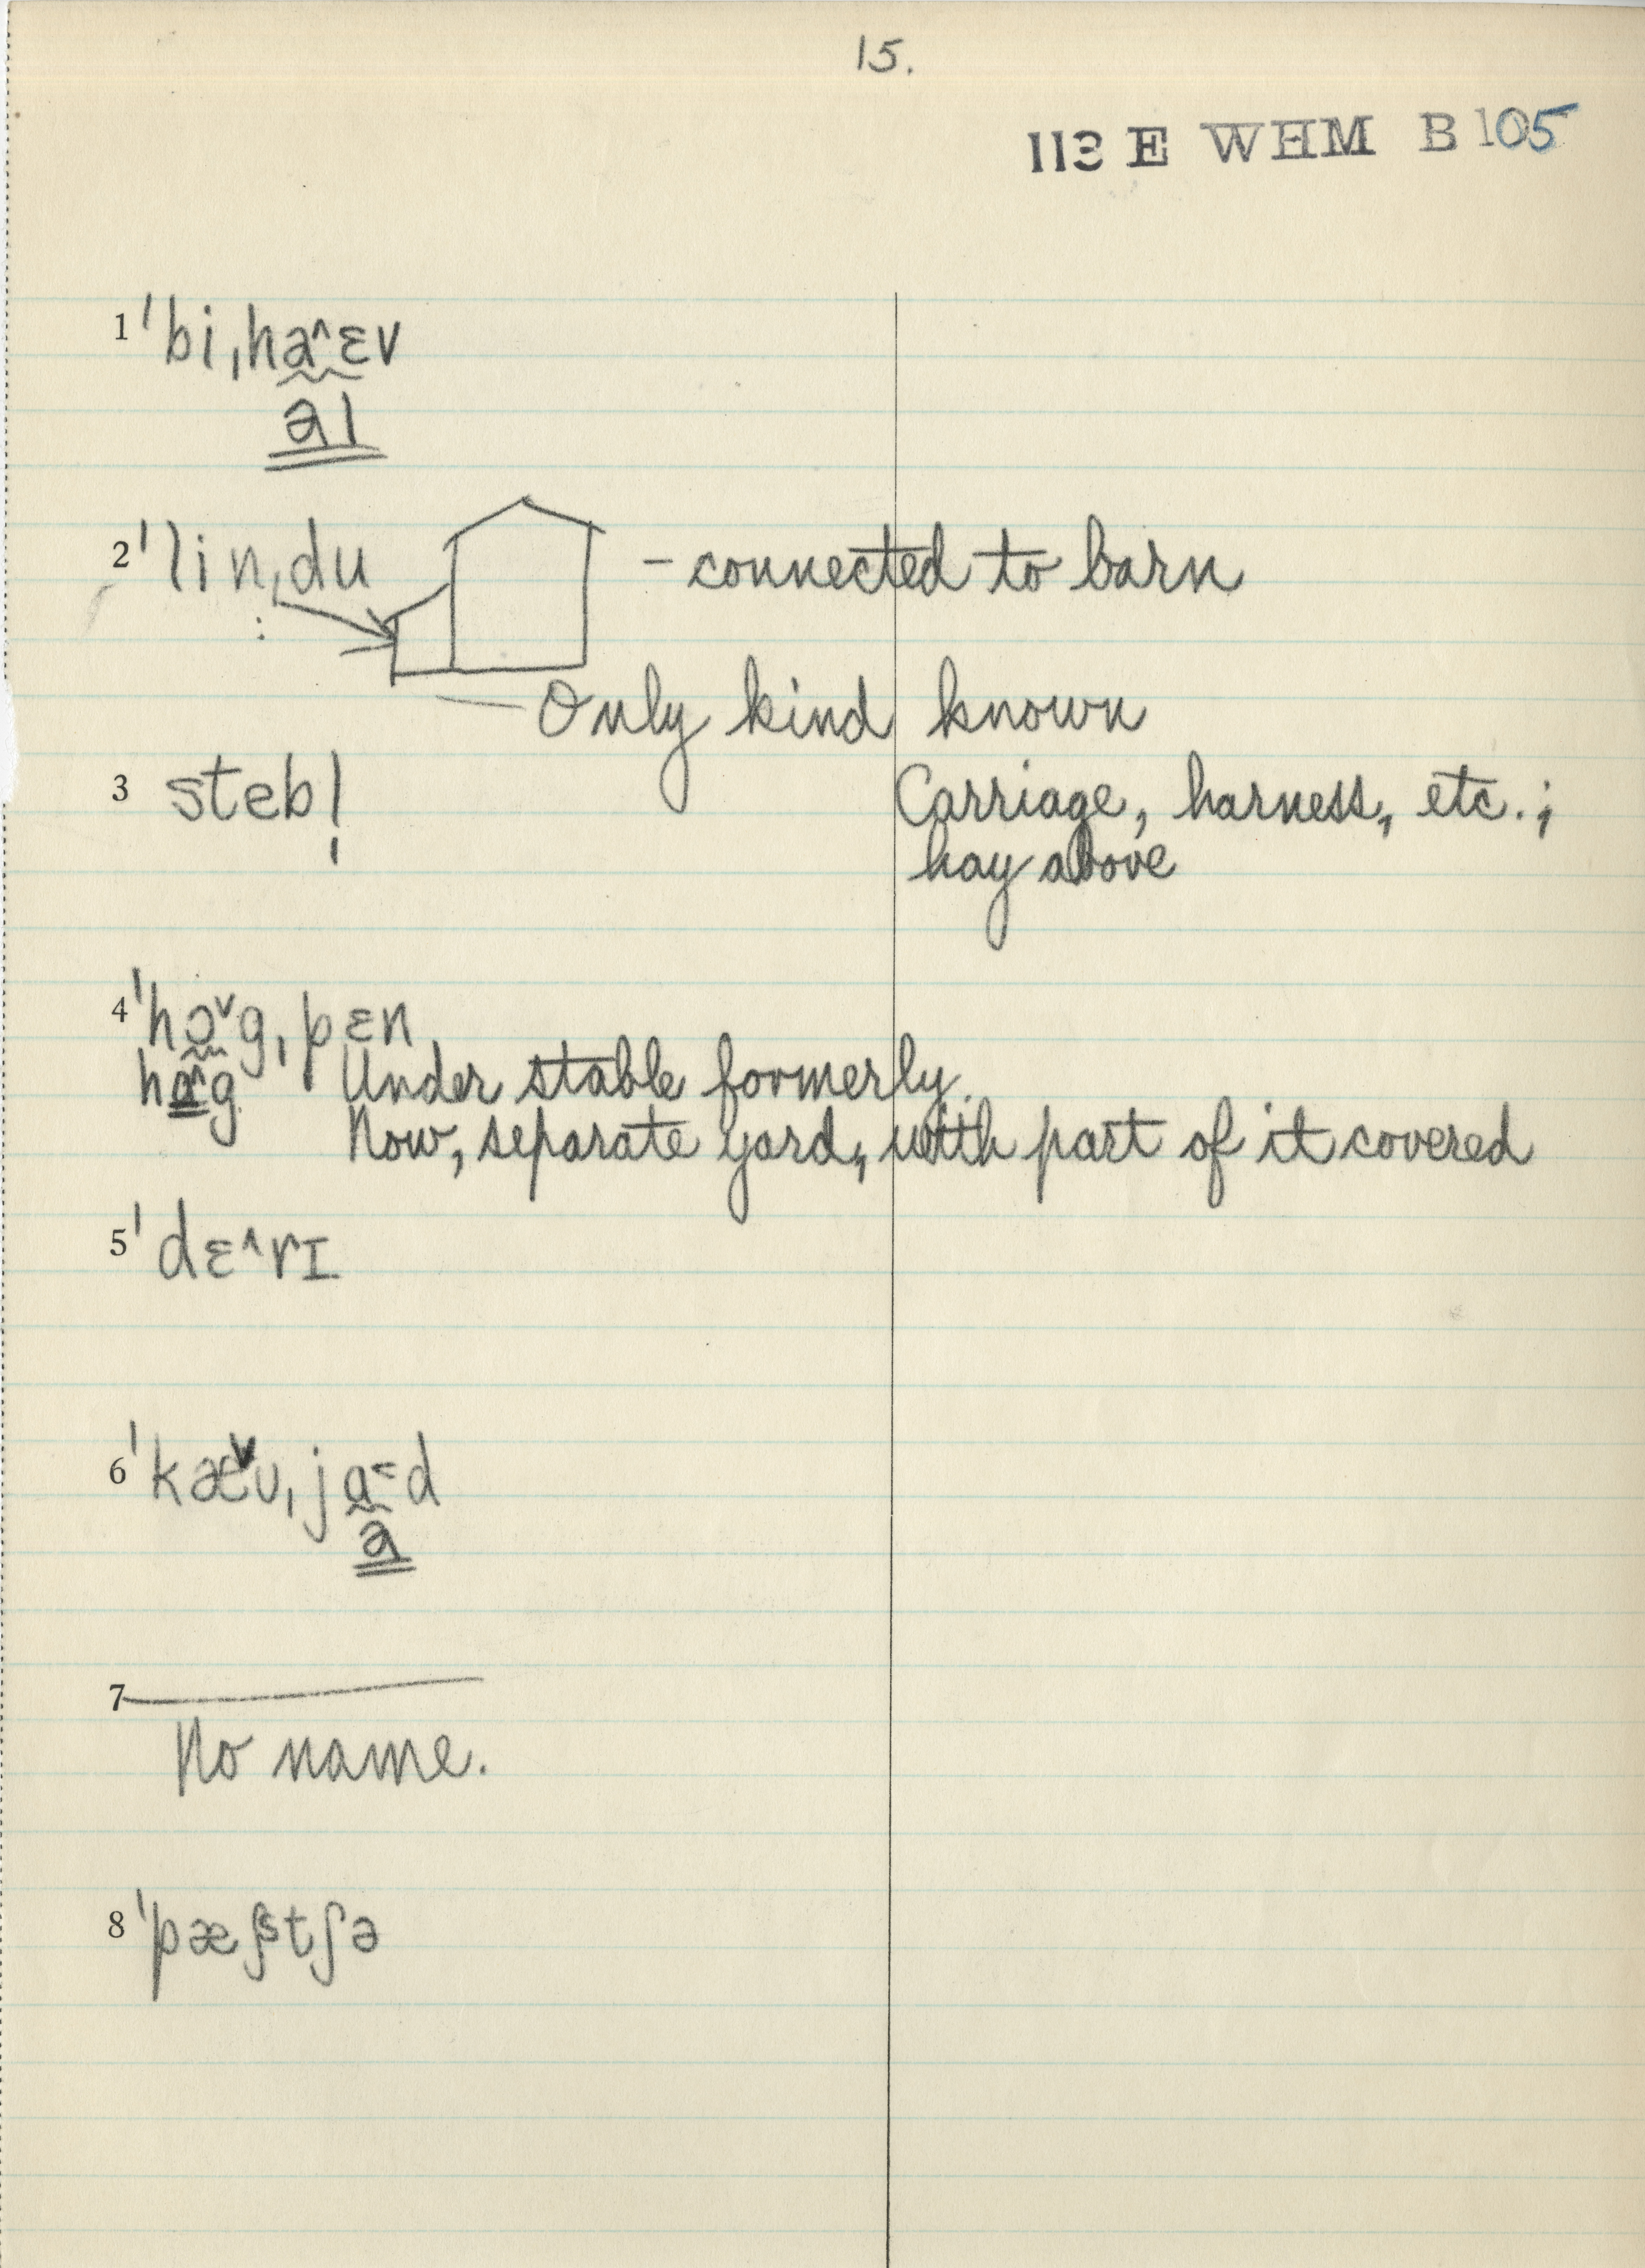 15.
113 E WHM B 105
1 ˈbiˌha^ɛv
aI
2 ˈlinˌdu – connected to barn
Only kind known
3 stebl̩ Carriage, harness, etc.;
hay above
4 ˈhɔˇgˌpɛn
ha^g Under stable formerly.
Now, separate yard, with part of it covered
5 ˈdɛ^rɪ
6 ˈkæˇʊˌja˂d
a
7
No name.
8 ˈpæstʃə